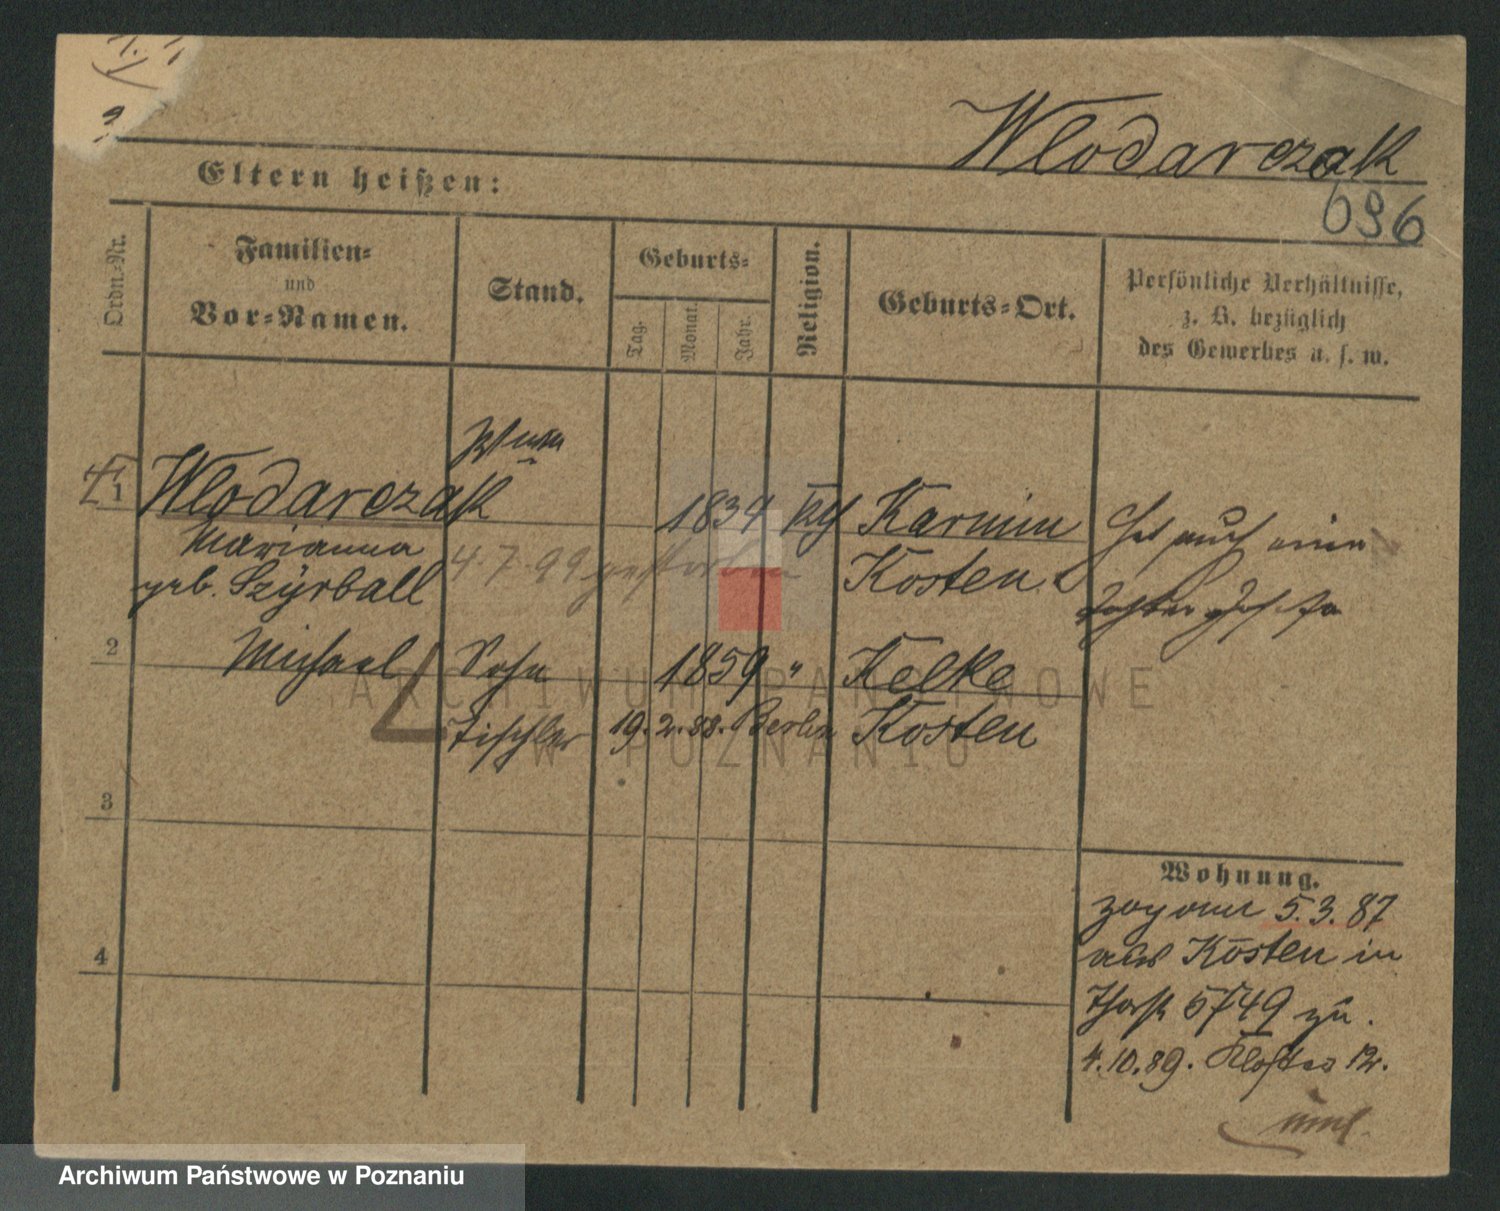 Wlodarczak
696
Eltern heißen:
Ordn.-Nr.
Familien-
und
Vor-Namen.
Stand.
Geburts-
Tag.
Monat.
Jahr.
Religion.
Geburts-Ort.
Persönliche Verhältnisse,
z. B. bezüglich
des Gewerbes u. s. w.
1
Wlodarczak
Marianna
geb. Szyrball
4.7.99 gestorben
1834
Karmin
Kosten
Hat auch eine
Tochter
2
Michael
Sohn
Tischler
1859
"
19.2.88. Berlin
Kelke
Kosten
3
4
Wohnung.
zog am 5.3.87
aus Kosten in
Thorstr 5/49 zu.
4.10.89. Kloster 12.
ARCHIWUM PAŃSTWOWE
W POZNANIU
Archiwum Państwowe w Poznaniu